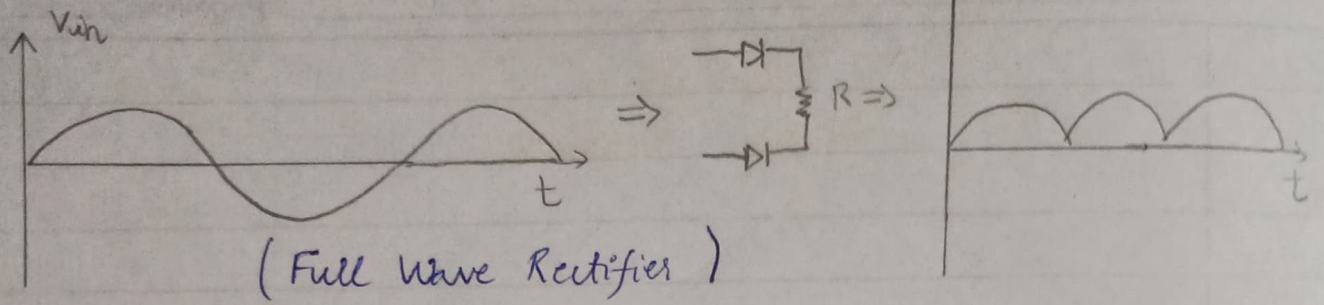 Vin
t
R
t
(Full Wave Rectifier)